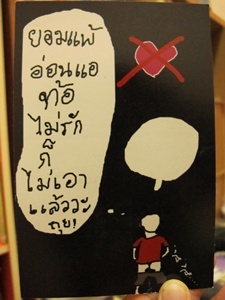 ยอมแพ้
อ่อนแอ
ท้อ
ไม่รัก
ก็
ไม่เอา
แล้ววะ
ถุย!